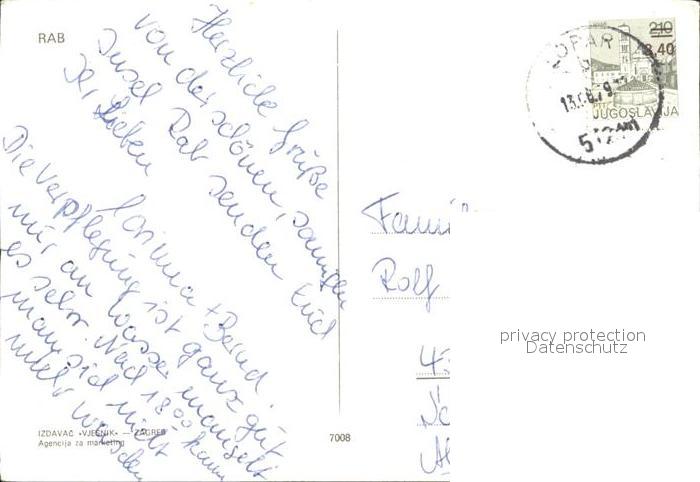 RAB
Herzliche Grüße
von der schönen, sonnigen
Insel Rab senden Euch
Ihr Lieben
Corinna + Bernd.
Die Verpflegung ist ganz gut
nur an Wasser mangelt
es sehr. Nach 18 00 kann
man sich nicht
mehr waschen
IZDAVAČ »VJESNIK« — ZAGREB
Agencija za marketing
7008
LOPAR
13.08.79
512
2,10
3,40
JUGOSLAVIJA
Famil
Rolf
privacy protection
Datenschutz